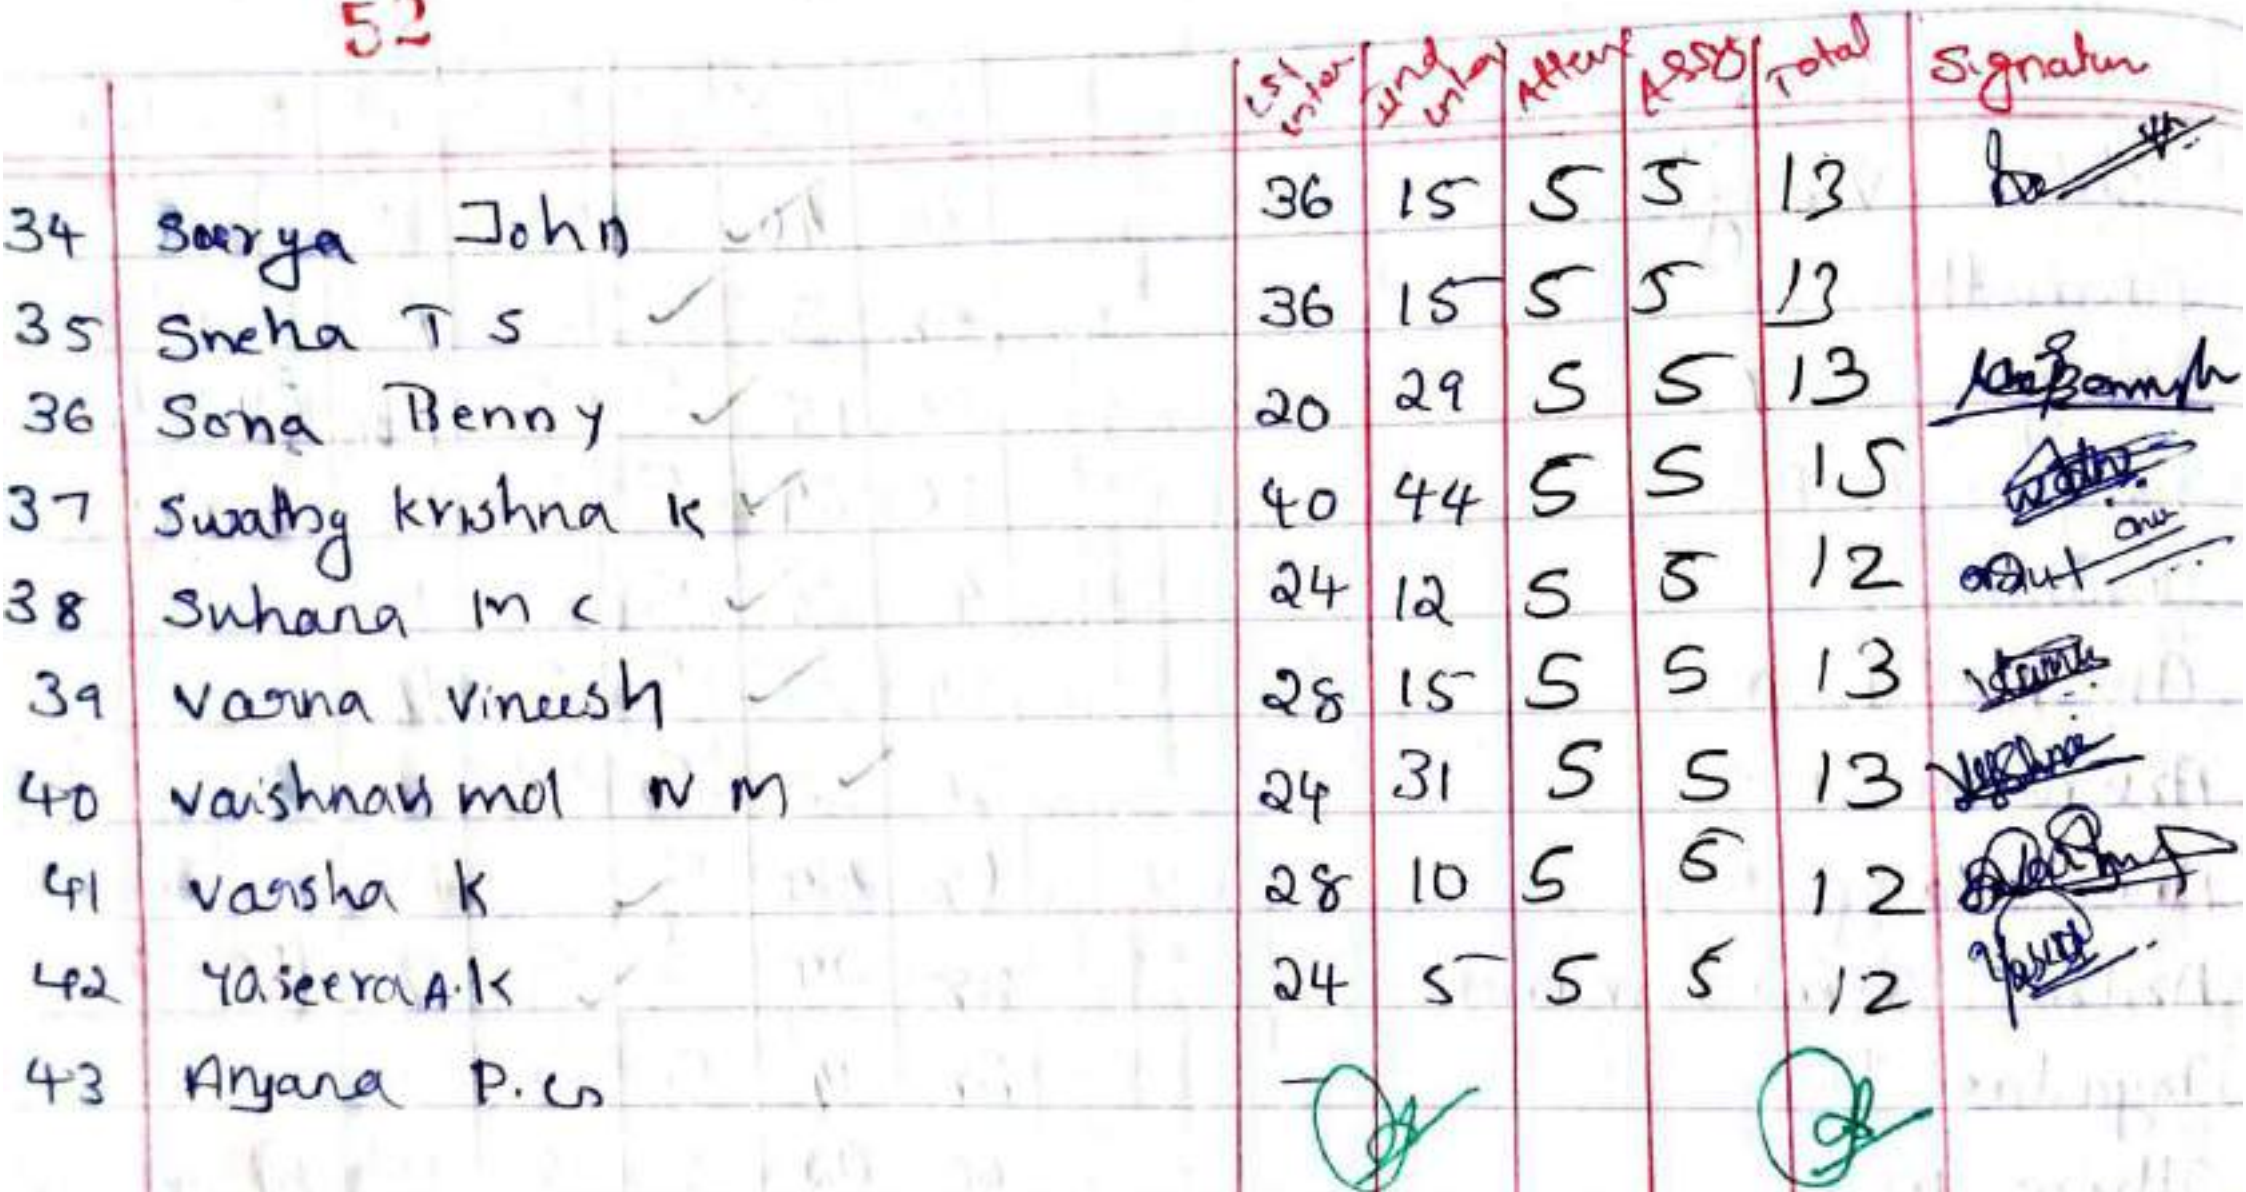 52
Ist inter IInd inter Atten Assg Total Signature
34 Soorya John 36 15 5 5 13
35 Sneha T S 36 15 5 5 13
36 Sona Benny 20 29 5 5 13
37 Swathy krishna K 40 44 5 5 15
38 Suhana M C 24 12 5 5 12
39 Varna Vineesh 28 15 5 5 13
40 Vaishnavi mol N M 24 31 5 5 13
41 Varsha K 28 10 5 5 12
42 Yaseera A.K 24 5 5 5 12
43 Anjana P. -